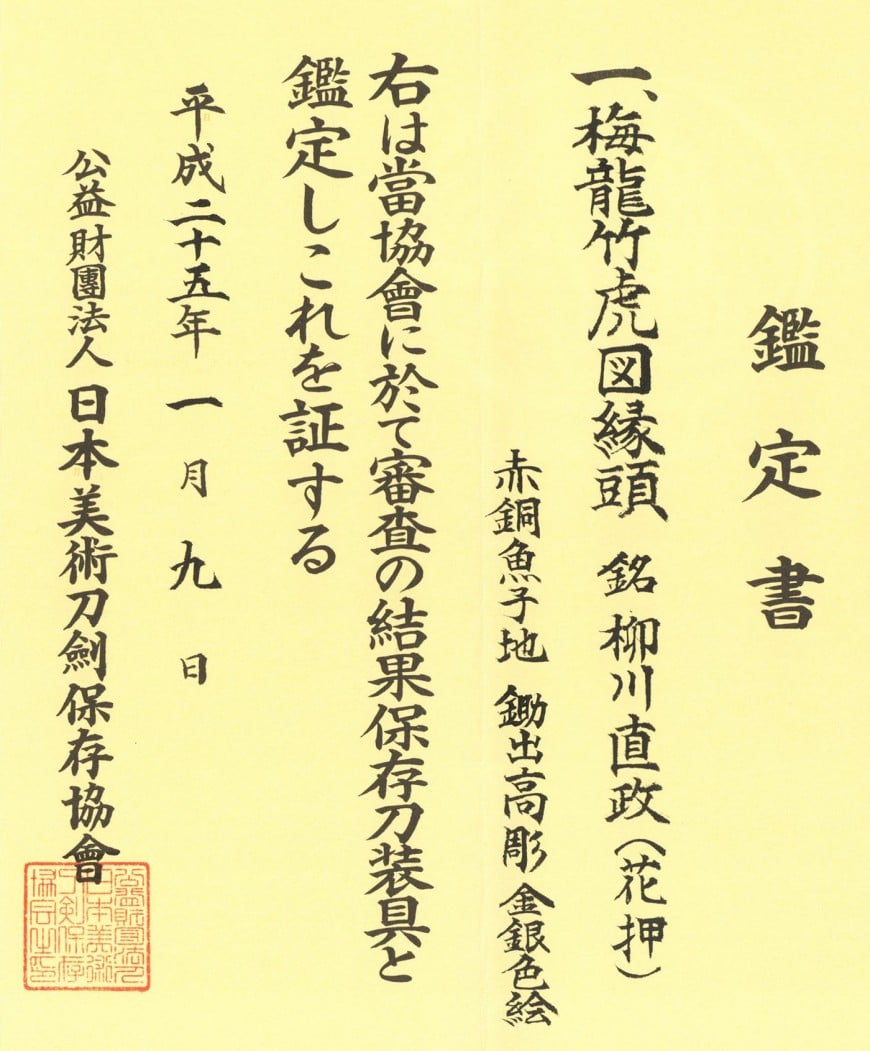 鑑定書
一、梅龍竹虎図縁頭 銘 柳川直政（花押）
赤銅魚子地 鋤出高彫 金銀色絵
右は當協會に於て審査の結果保存刀装具と
鑑定しこれを証する
平成二十五年一月九日
公益財團法人 日本美術刀劍保存協會